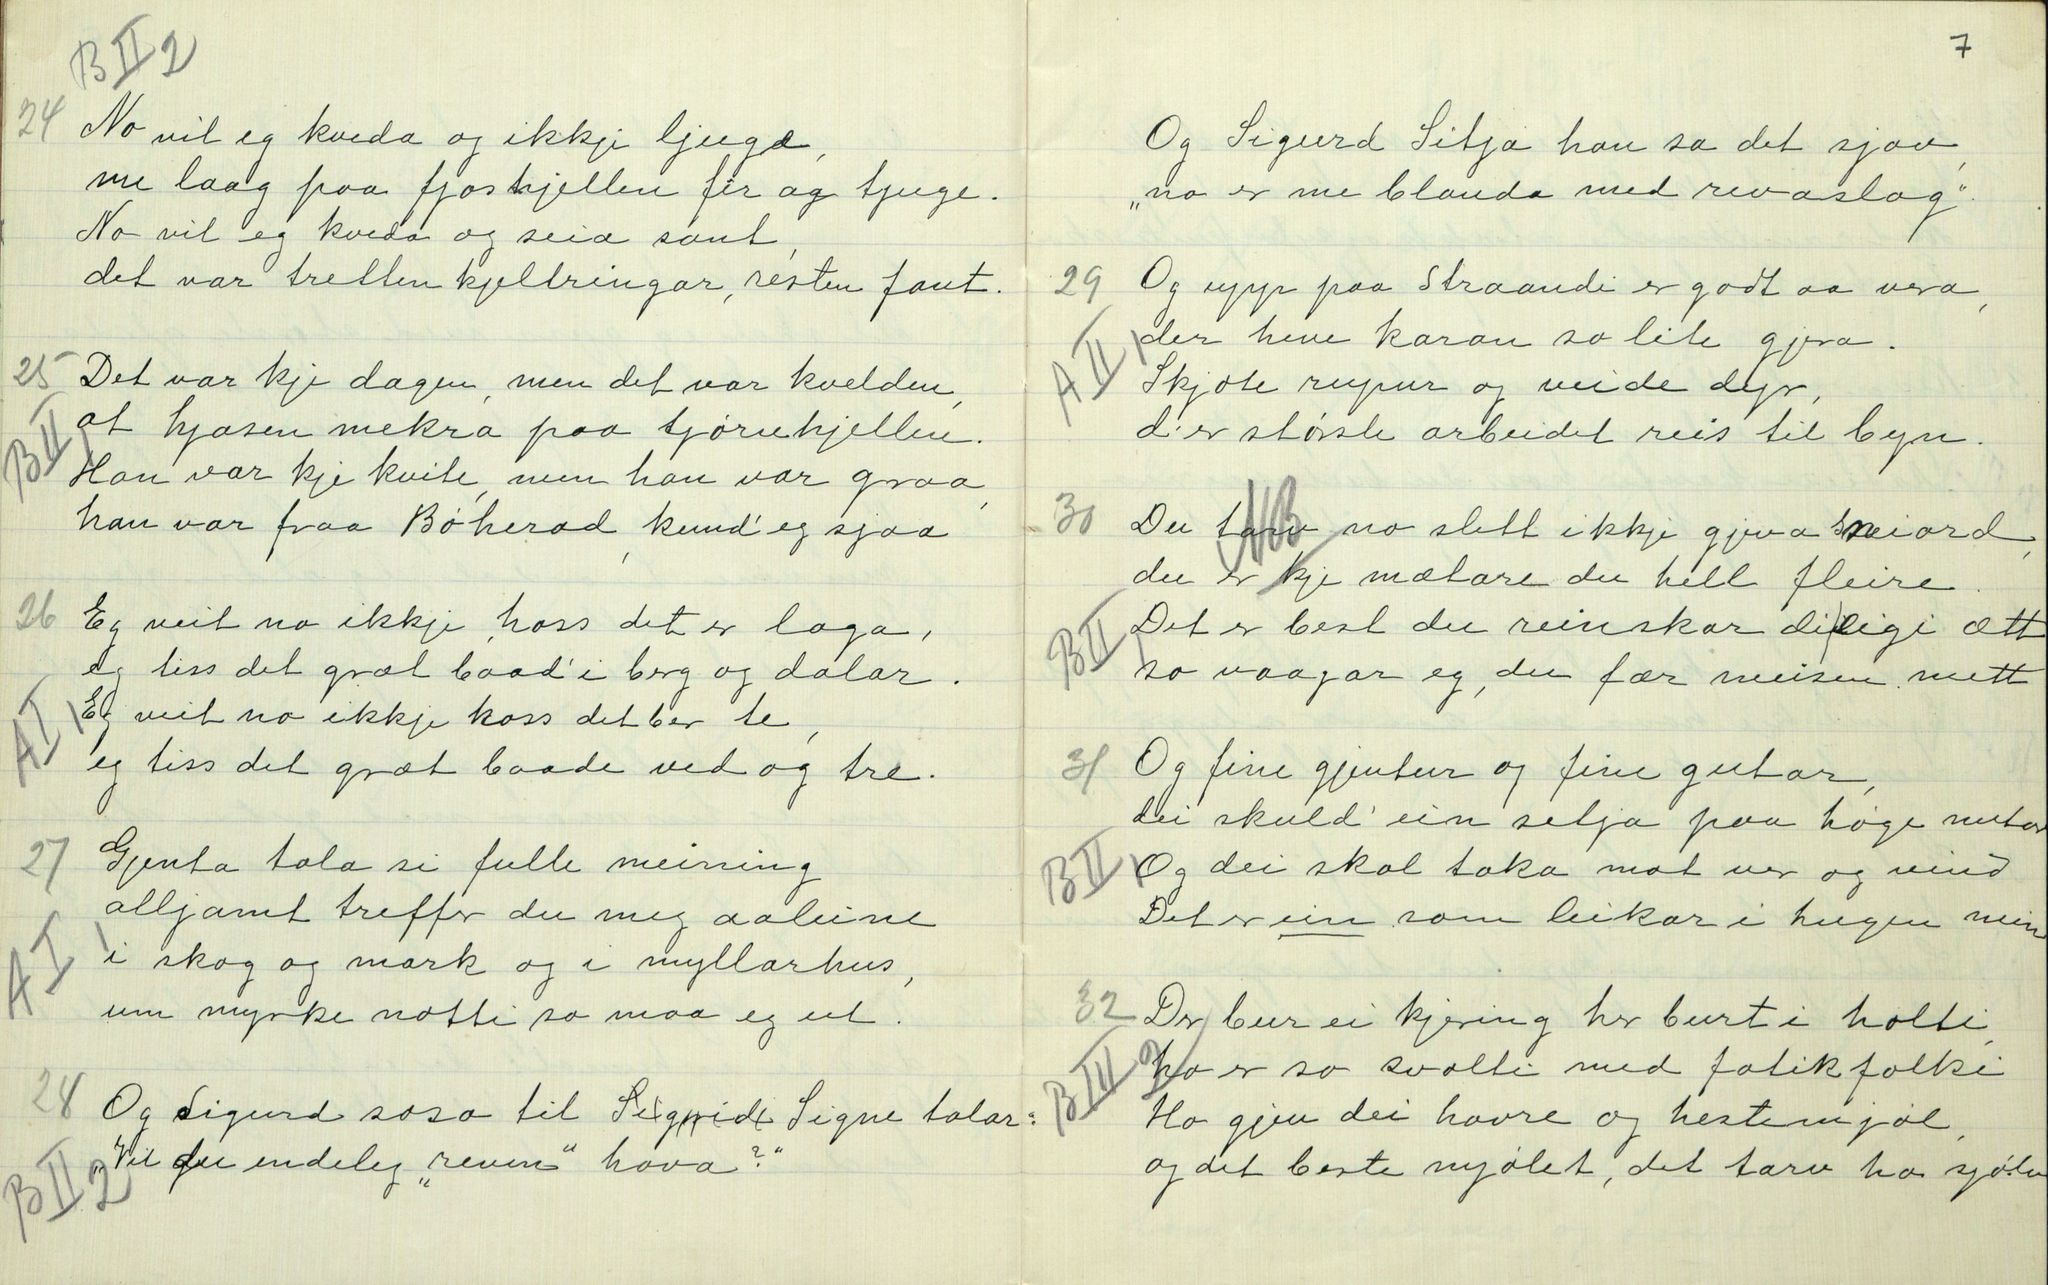 B II 2
24 No vil eg kveda og ikkje ljuga,
me laag paa fjoshjellen fir og tjuge.
No vil eg kveda og seia sant,
det var tretten kjeltringar, resten fant.
25 Det var kje dagen, men det var kvelden,
B II 1 at hjasen mekra paa tjørnhjellen.
Han var kje kvite, men han var graa,
han var fraa Bøherad, kund' eg sjaa
26 Eg veit no ikkje hoss det er laga,
eg tiss det græt baad' i berg og dalar.
A I 1 Eg veit no ikkje koss det ber te,
eg tiss det græt baade ved og tre.
27 Gjenta tala si fulle meining
alljamt treffer du meg aaleine
A I 1 i skog og mark og i myllarhus,
um myrke notti so maa eg ut.
28 Og Sigurd soso til Sigridi Signe talar:
B II 2 "Vil du endeleg "reven" hava?"
7
Og Sigurd Sitja han sa det sjav,
"no er me blanda med revaslag".
29 Og upp paa Straandi er godt aa vera,
A II 1 der heve karan so lite gjera.
Skjote rupur og veide dyr,
d'er største arbeidet reis til byn.
30 Du tarv no slett ikkje gjeva sneiord,
NB
du er kje mætare du hell fleire.
B II 1 Det er best du reinskar di eigi ætt
so vaagar eg, du fær meisen mett
31 Og fine gjentur og fine gutar,
dei skuld' ein setja paa høge nutar
B II 1 Og dei skal taka mot ver og vind
Det er ein som leikar i hugen min
32 Der bur ei kjering her burt i holti,
B III 2 ho er so svolti med fatikfolki
Ho gjev dei havre og hestemjøl,
og det beste mjølet, det tarv ho sjølv